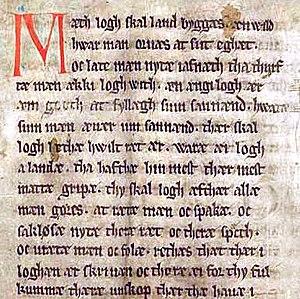 Mæth logh skal land byggas. æn wild
hwar man oruæs at sit eghet.
oc late mæn nyte iafnæth tha thurf
te mæn ækki logh with. æn ængi logh ær
æm goth at fyllægh sum sannænd. hwaræ
sum mæn æuær um sannænd. ther skal
logh lethæ hwilt ret ær. Waræ æi logh
a landæ. tha hafthe hin mest ther mest
mattæ gripæ. thy skal logh æfthær allæ
mæn gøræs. at retæ mæn oc spakæ. oc
saklosæ nyte theræ ret oc theræ spæch.
oc uretæ mæn oc folæ. rethæs that thær i
loghæn ær skriuan oc thoræ æi for thy ful
kummæ theræ unskop thær the haue i